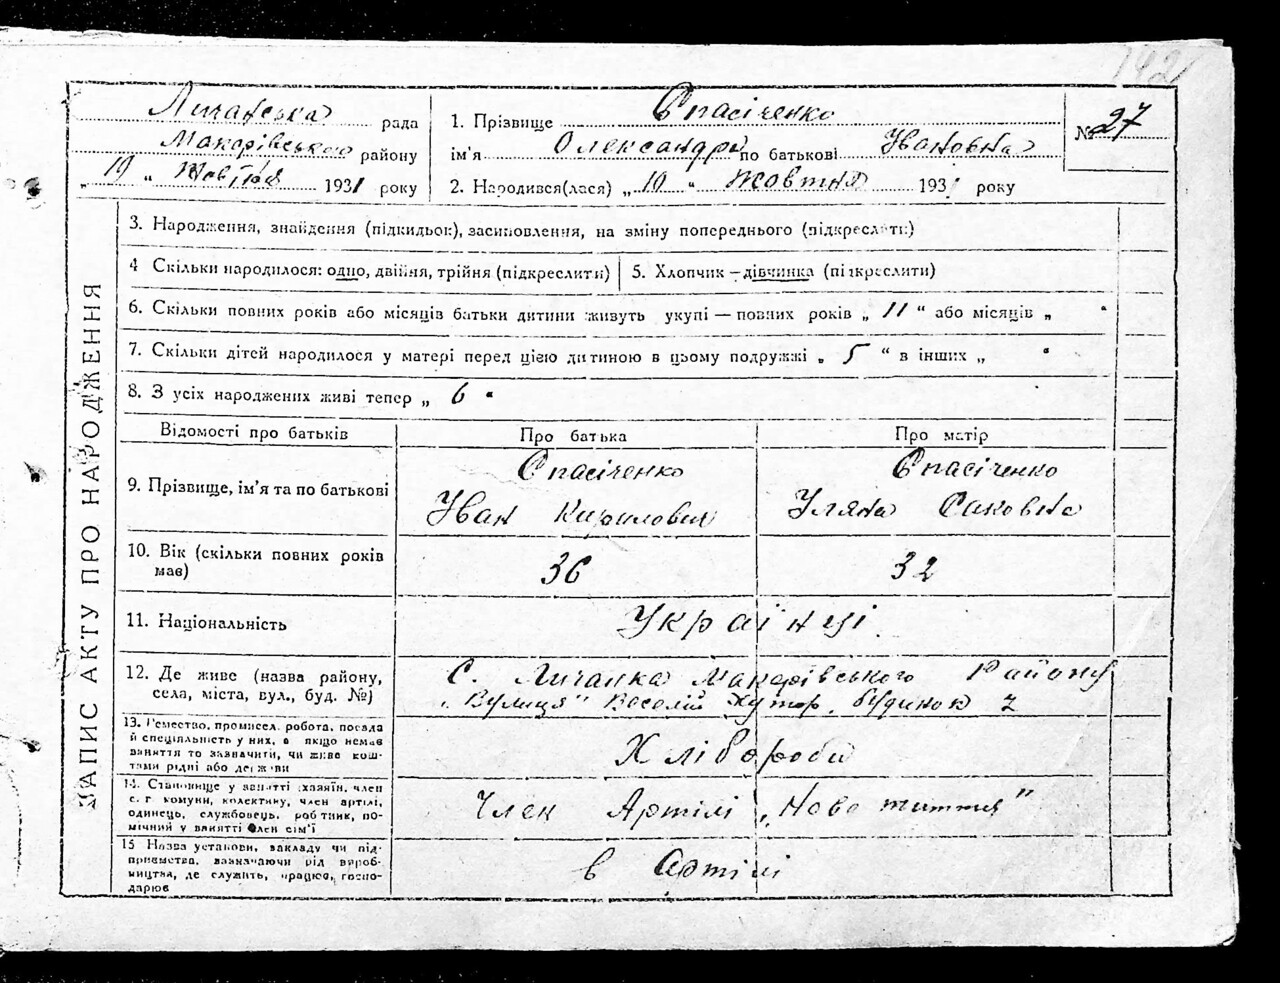 142
Личанська рада
Макарівського району
„ 19 “ Жовтня 1931 року
1. Прізвище Спасіченко
ім'я Олександра по батькові Івановна
2. Народився(лася) „ 10 “ жовтня 1931 року
№ 27
ЗАПИС АКТУ ПРО НАРОДЖЕННЯ
3. Народження, знайдення (підкидьок), засиновлення, на зміну попереднього (підкреслити)
4 Скільки народилося: одно, двійня, трійня (підкреслити)
5. Хлопчик — дівчинка (підкреслити)
6. Скільки повних років або місяців батьки дитини живуть укупі — повних років „ 11 “ або місяців „ “
7. Скільки дітей народилося у матері перед цією дитиною в цьому подружжі „ 5 “ в інших „ “
8. З усіх народжених живі тепер „ 6 “
Відомості про батьків
Про батька
Про матір
9. Прізвище, ім'я та по батькові
Спасіченко
Іван Кирилович
Спасіченко
Уляна Саковна
10. Вік (скільки повних років
має)
36
32
11. Національність
Українці
12. Де живе (назва району,
села, міста, вул., буд. №)
С. Личанка Макарівського Району
„Вулиця“ Веселий Хутор, будинок 2
13. Ремество, промисел, робота, посада
й спеціяльність у них, а якщо немає
заняття то зазначити, чи живе кош-
тами рідні або держави
Хлібороби
14. Становище у занятті хазяїн, член
с. г комуни, колективу, член артілі,
одинець, службовець, робітник, по-
мічний у занятті член сім'ї
Член Артілі „Нове життя”
15 Назва установи, закладу чи під-
приємства, зазначаючи рід вироб-
ництва, де служить, працює, госпо-
дарює
в Артілі